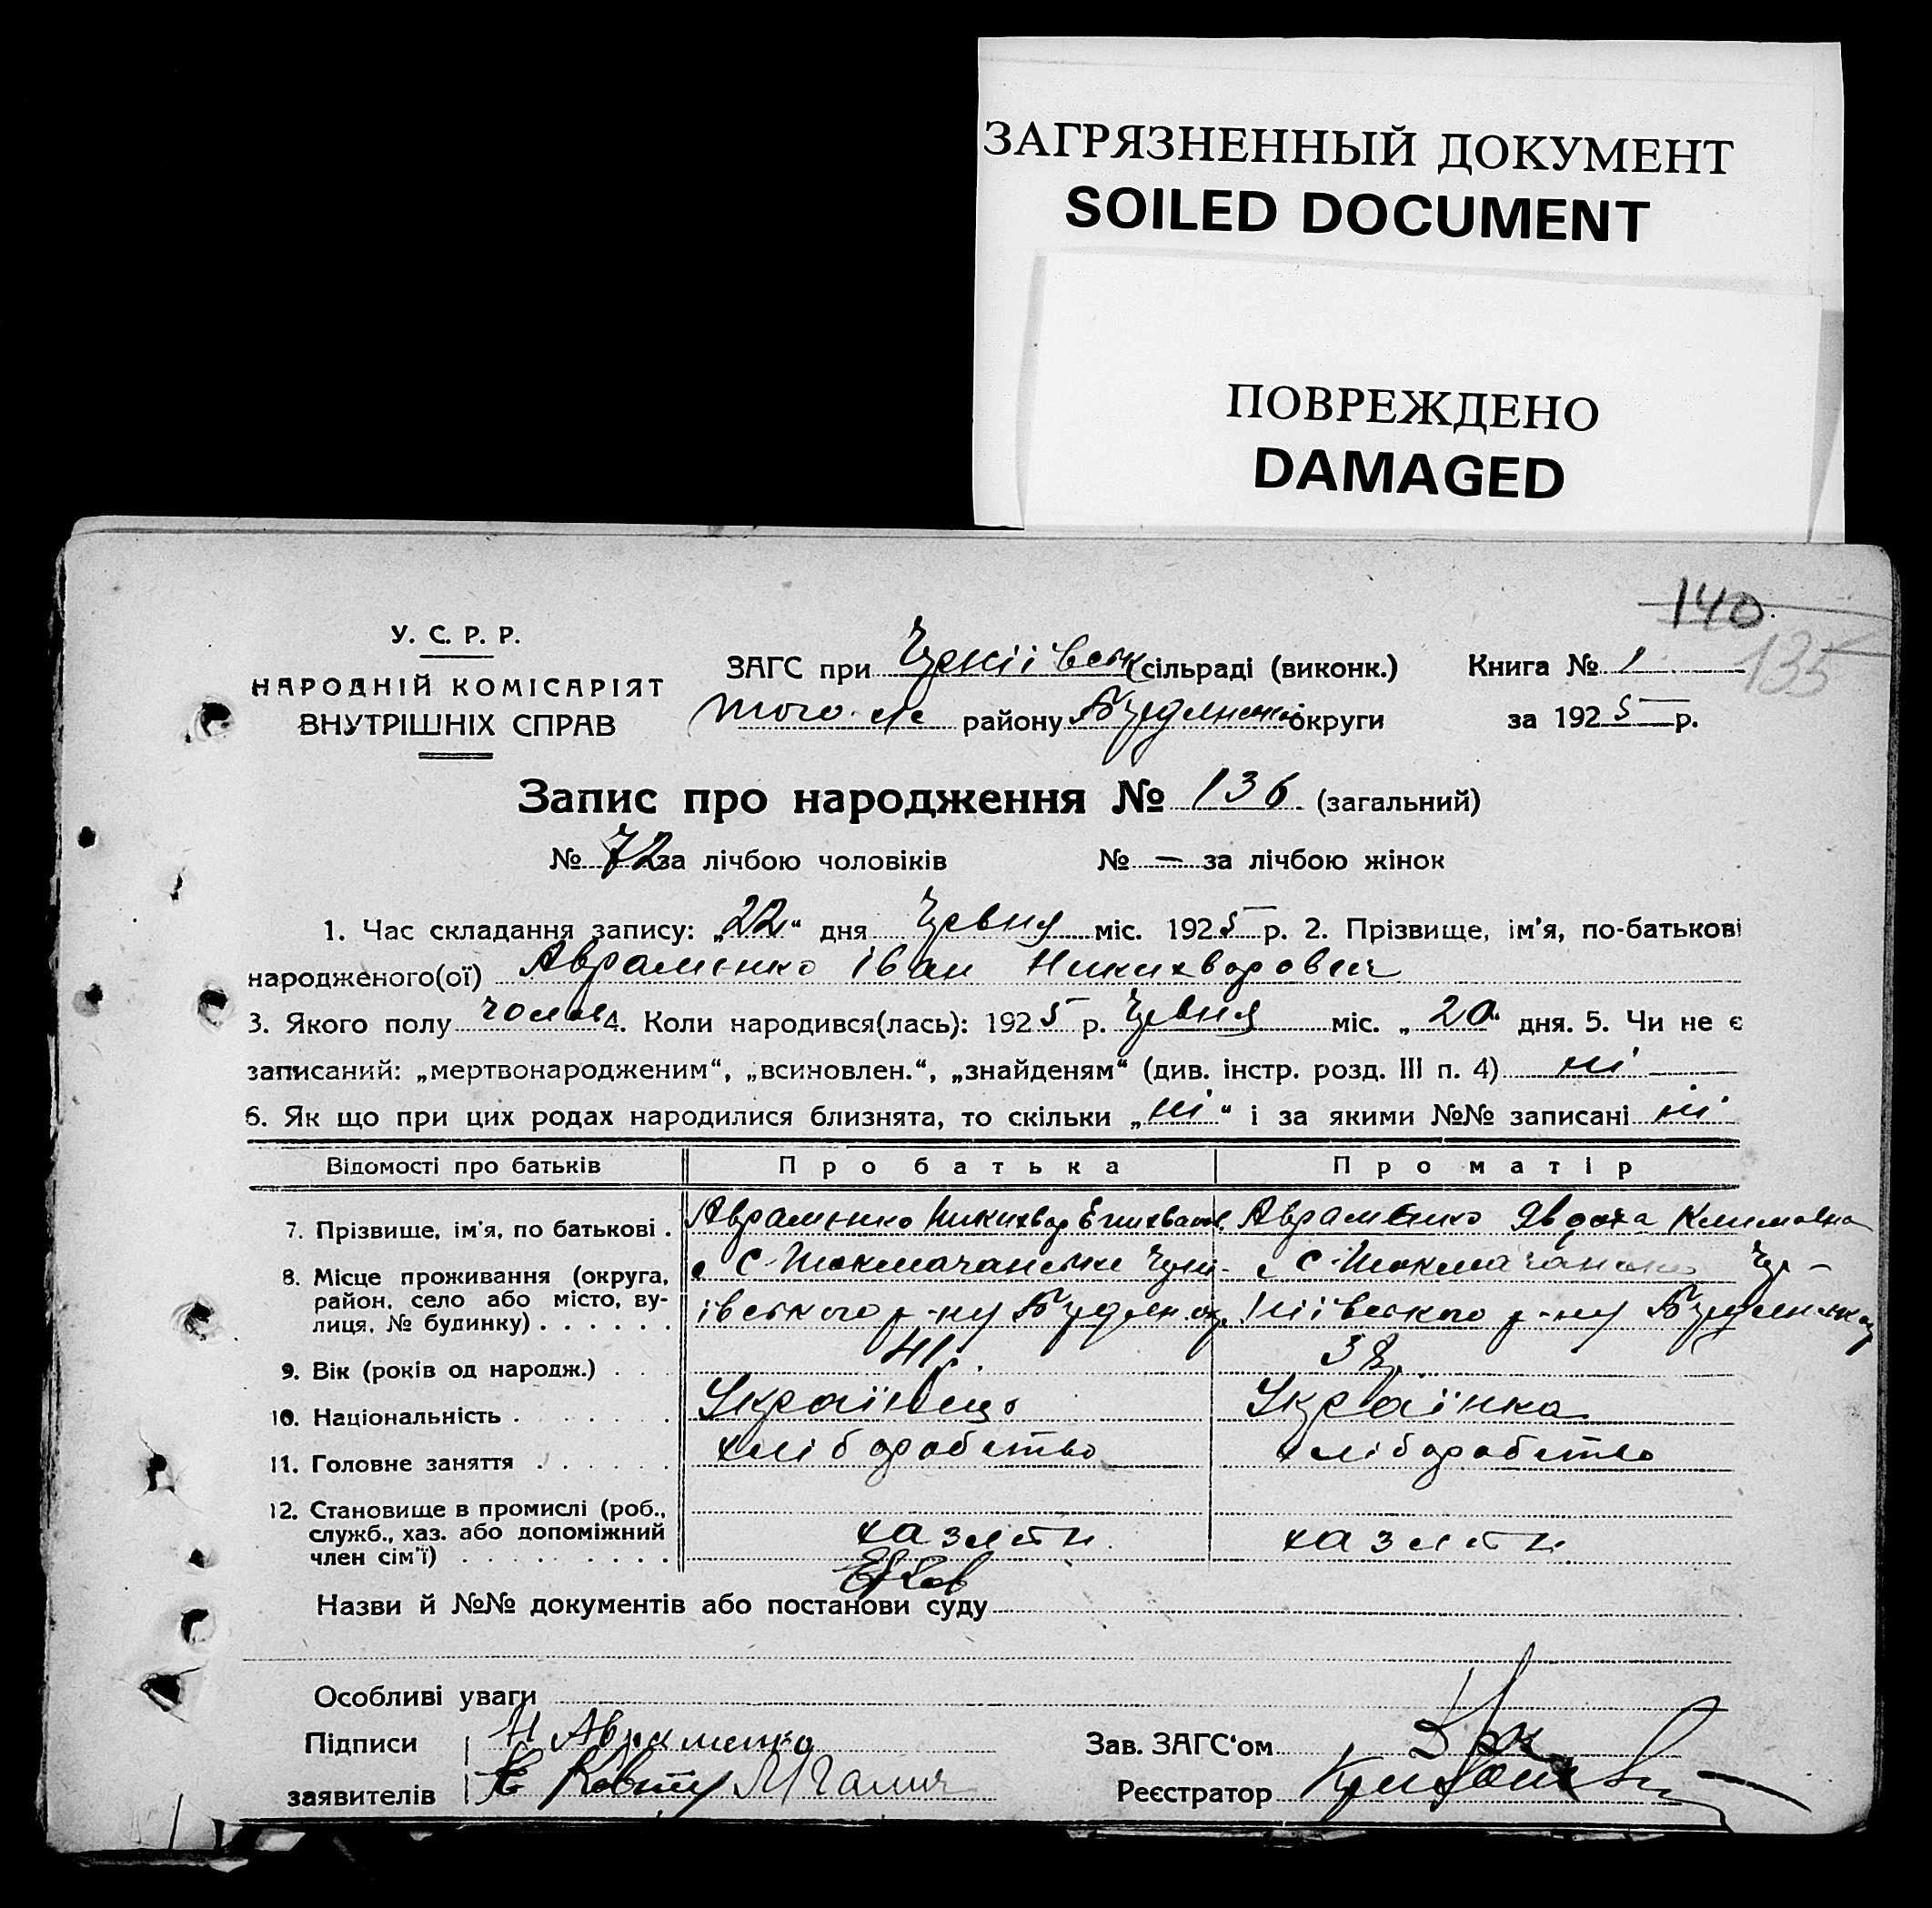 ЗАГРЯЗНЕННЫЙ ДОКУМЕНТ
SOILED DOCUMENT
ПОВРЕЖДЕНО
DAMAGED
140
135
У. С. Р. Р.
НАРОДНІЙ КОМІСАРІЯТ
ВНУТРІШНІХ СПРАВ
ЗАГС при сільраді (виконк.) Книга № 1
того же району округи за 1925 р.
Запис про народження № 136 (загальний)
№ 72 за лічбою чоловіків № — за лічбою жінок
1. Час складання запису: „22“ дня Червня міс. 1925 р. 2. Прізвище, ім'я, по-батькові
народженого(ої) Авраменко Іван Никихворович
3. Якого полу чолов 4. Коли народився(лась): 1925 р. Червня міс. „20“ дня. 5. Чи не є
записаний: „мертвонародженим“, „всиновлен.“, „знайденям“ (див. інстр. розд. III п. 4) ні
6. Як що при цих родах народилися близнята, то скільки „ні“ і за якими №№ записані ні
Відомості про батьків Про батька Про матір
7. Прізвище, ім'я, по батькові . Авраменко Никихвор Авраменко Явдоха Климовна
8. Місце проживання (округа, с. Токмачанське с. Токмачансько
район, село або місто, ву-
лиця, № будинку) . . . . . . івського р-ну р-ну
9. Вік (років од народж.) . . . 41 38
10. Національність . . . . . . Українець Українка
11. Головне заняття . . . . . . хліборобство хліборобство
12. Становище в промислі (роб.,
служб., хаз. або допоміжний
член сім'ї) . . . . . . . . . хазяїн хазяїн
Назви й №№ документів або постанови суду
Особливі уваги
Підписи Н Авраменко Зав. ЗАГС'ом
заявителів Реєстратор